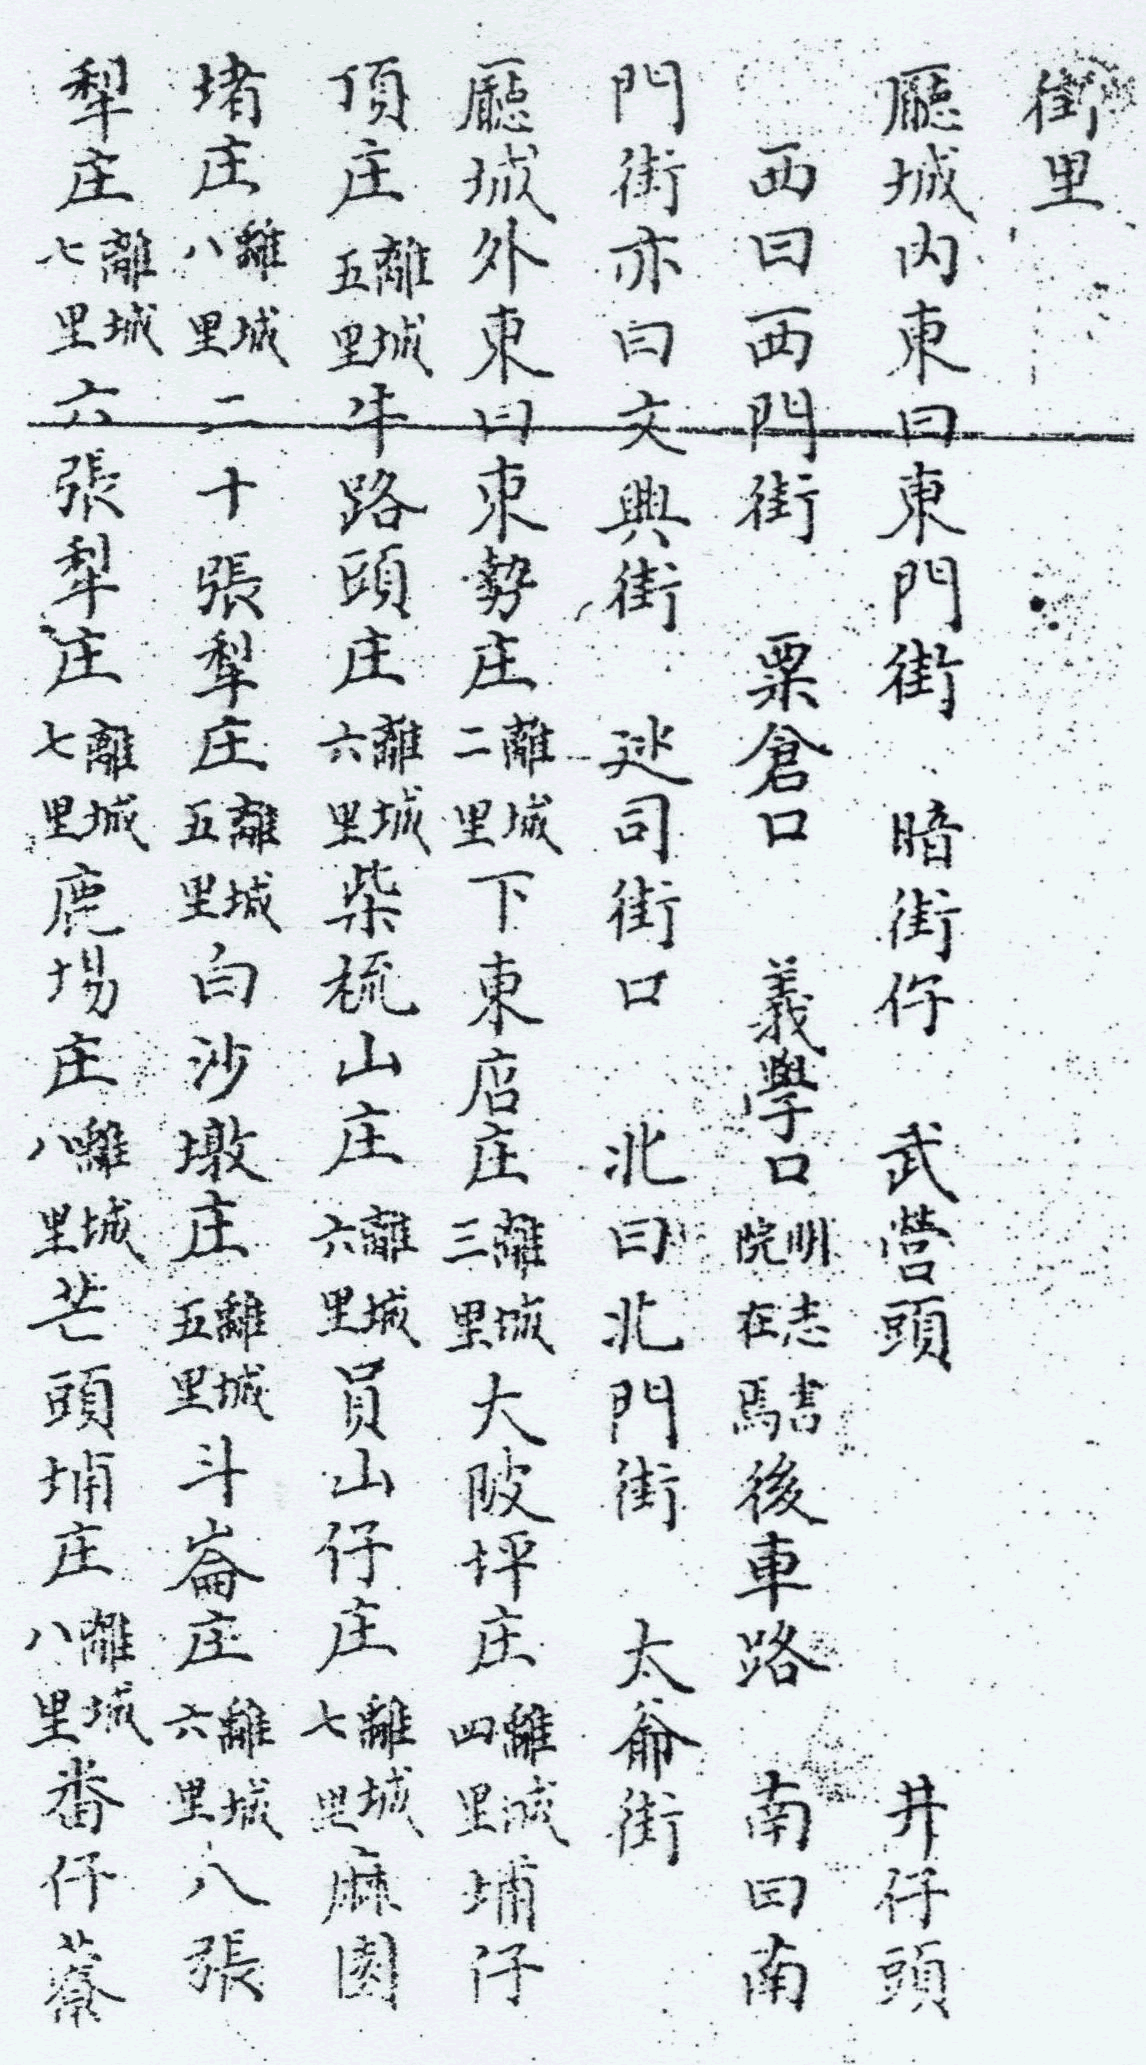 街里
廳城內東曰東門街　暗街仔　武營頭　井仔頭
西曰西門街　粟倉口　義學口明志書院在焉後車路　南曰南
門街亦曰文興街　廵司街口　北曰北門街　太爺街
廳城外東曰東勢庄離城二里下東店庄離城三里大陂坪庄離城四里埔仔
頂庄離城五里牛路頭庄離城六里柴梳山庄離城六里員山仔庄離城七里麻園
堵庄離城八里二十張犁庄離城五里白沙墩庄離城五里斗崙庄離城六里八張
犁庄離城七里六張犁庄離城七里鹿場庄離城八里芒頭埔庄離城八里番仔藔